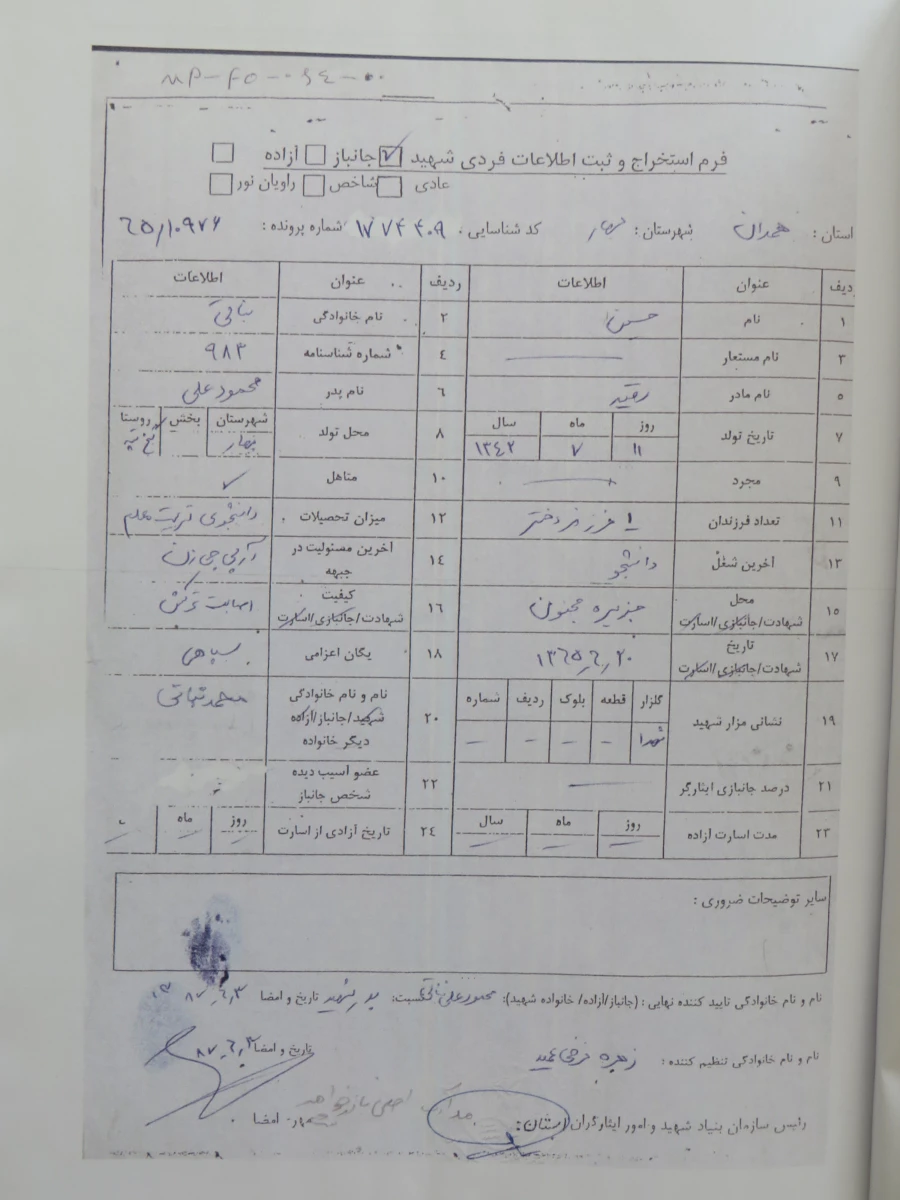 فرم استخراج و ثبت اطلاعات فردی شهید ✓ جانباز آزاده
عادی شاخص راویان نور
استان: همدان شهرستان: بهار کد شناسایی: ۱۷۷۴۴۰۹ شماره پرونده: ۶۵/۱۰۹۷۶
ردیف عنوان اطلاعات ردیف عنوان اطلاعات
۱ نام حسین ۲ نام خانوادگی بنائی
۳ نام مستعار — ۴ شماره شناسنامه ۹۸۳
۵ نام مادر رقیه ۶ نام پدر محمودعلی
۷ تاریخ تولد روز ماه سال ۸ محل تولد شهرستان بخش روستا
۱۱ ۷ ۱۳۴۲ بهار
۹ مجرد — ۱۰ متاهل ✓
۱۱ تعداد فرزندان ۱ فرزند دختر ۱۲ میزان تحصیلات دانشجوی تربیت معلم
۱۳ آخرین شغل دانشجو ۱۴ آخرین مسئولیت در جبهه آرپی جی زن
۱۵ محل شهادت/جانبازی/اسارت جزیره مجنون ۱۶ کیفیت شهادت/جانبازی/اسارت اصابت ترکش
۱۷ تاریخ شهادت/جانبازی/اسارت ۱۳۶۵،۶،۲۰ ۱۸ یگان اعزامی سپاهی
۱۹ نشانی مزار شهید گلزار قطعه بلوک ردیف شماره ۲۰ نام و نام خانوادگی شهید/جانباز/آزاده دیگر خانواده محمد
شهدا — — — —
۲۱ درصد جانبازی ایثارگر — ۲۲ عضو آسیب دیده شخص جانباز
۲۳ مدت اسارت آزاده روز ماه سال ۲۴ تاریخ آزادی از اسارت روز ماه
سایر توضیحات ضروری:
نام و نام خانوادگی تایید کننده نهایی: (جانباز/آزاده/ خانواده شهید): محمودعلی بنائی نسبت: پدر شهید تاریخ و امضا ۸۷،۶،۳
نام و نام خانوادگی تنظیم کننده: زهره تاریخ و امضا ۸۷،۶،۳
رئیس سازمان بنیاد شهید و امور ایثارگران استان: مهر و امضا